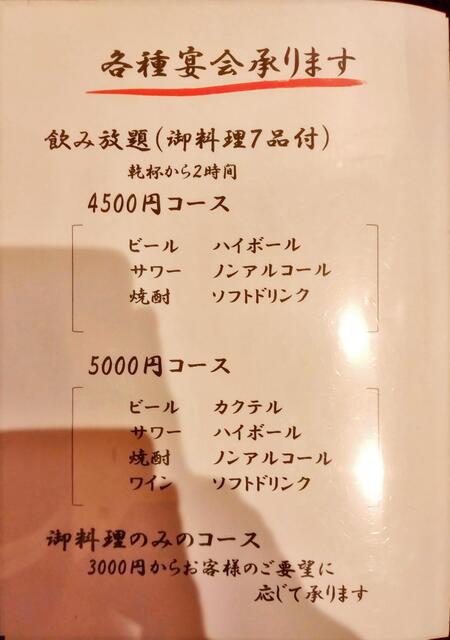 各種宴会承ります
飲み放題(御料理7品付)
乾杯から2時間
4500円コース
ビール ハイボール
サワー ノンアルコール
焼酎 ソフトドリンク
5000円コース
ビール カクテル
サワー ハイボール
焼酎 ノンアルコール
ワイン ソフトドリンク
御料理のみのコース
3000円からお客様のご要望に
応じて承ります